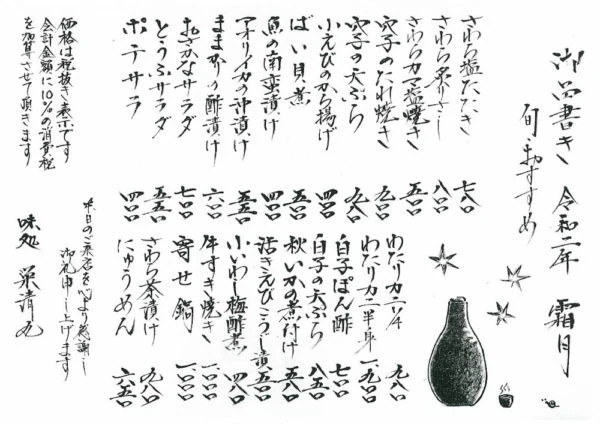 御品書き 令和二年 霜月
旬のおすすめ
さわら塩たたき 七八〇
さわら炙りさし 八〇〇
さわらカマ塩焼き 五〇〇
穴子のたれ焼き 九〇〇
穴子の天ぷら 九八〇
小えびのから揚げ 四〇〇
ばい貝煮 五〇〇
魚の南蛮漬け 四五〇
アオリイカの沖漬け 五五〇
ままかりの酢漬け 六〇〇
おさかなサラダ 七〇〇
とうふサラダ 五五〇
ポテサラ 四〇〇
わたりカニ 九八〇
わたりカニ半身 一九〇〇
白子ぽん酢 七〇〇
白子の天ぷら 八五〇
秋いかの煮付け 五八〇
活きえびこうじ漬 五〇〇
小いわし梅酢煮 四八〇
牛すき焼き 一〇〇〇
寄せ鍋 一〇〇〇
さわら茶漬け 九八〇
にゅうめん 六五〇
価格は税抜き表示です
会計金額に10%の消費税
を加算させて頂きます
本日のご来店を心より感謝し
御礼申し上げます
味処 栄清丸